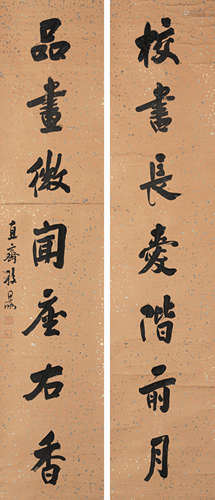 校書長愛階前月
品畫微聞座右香
直齋